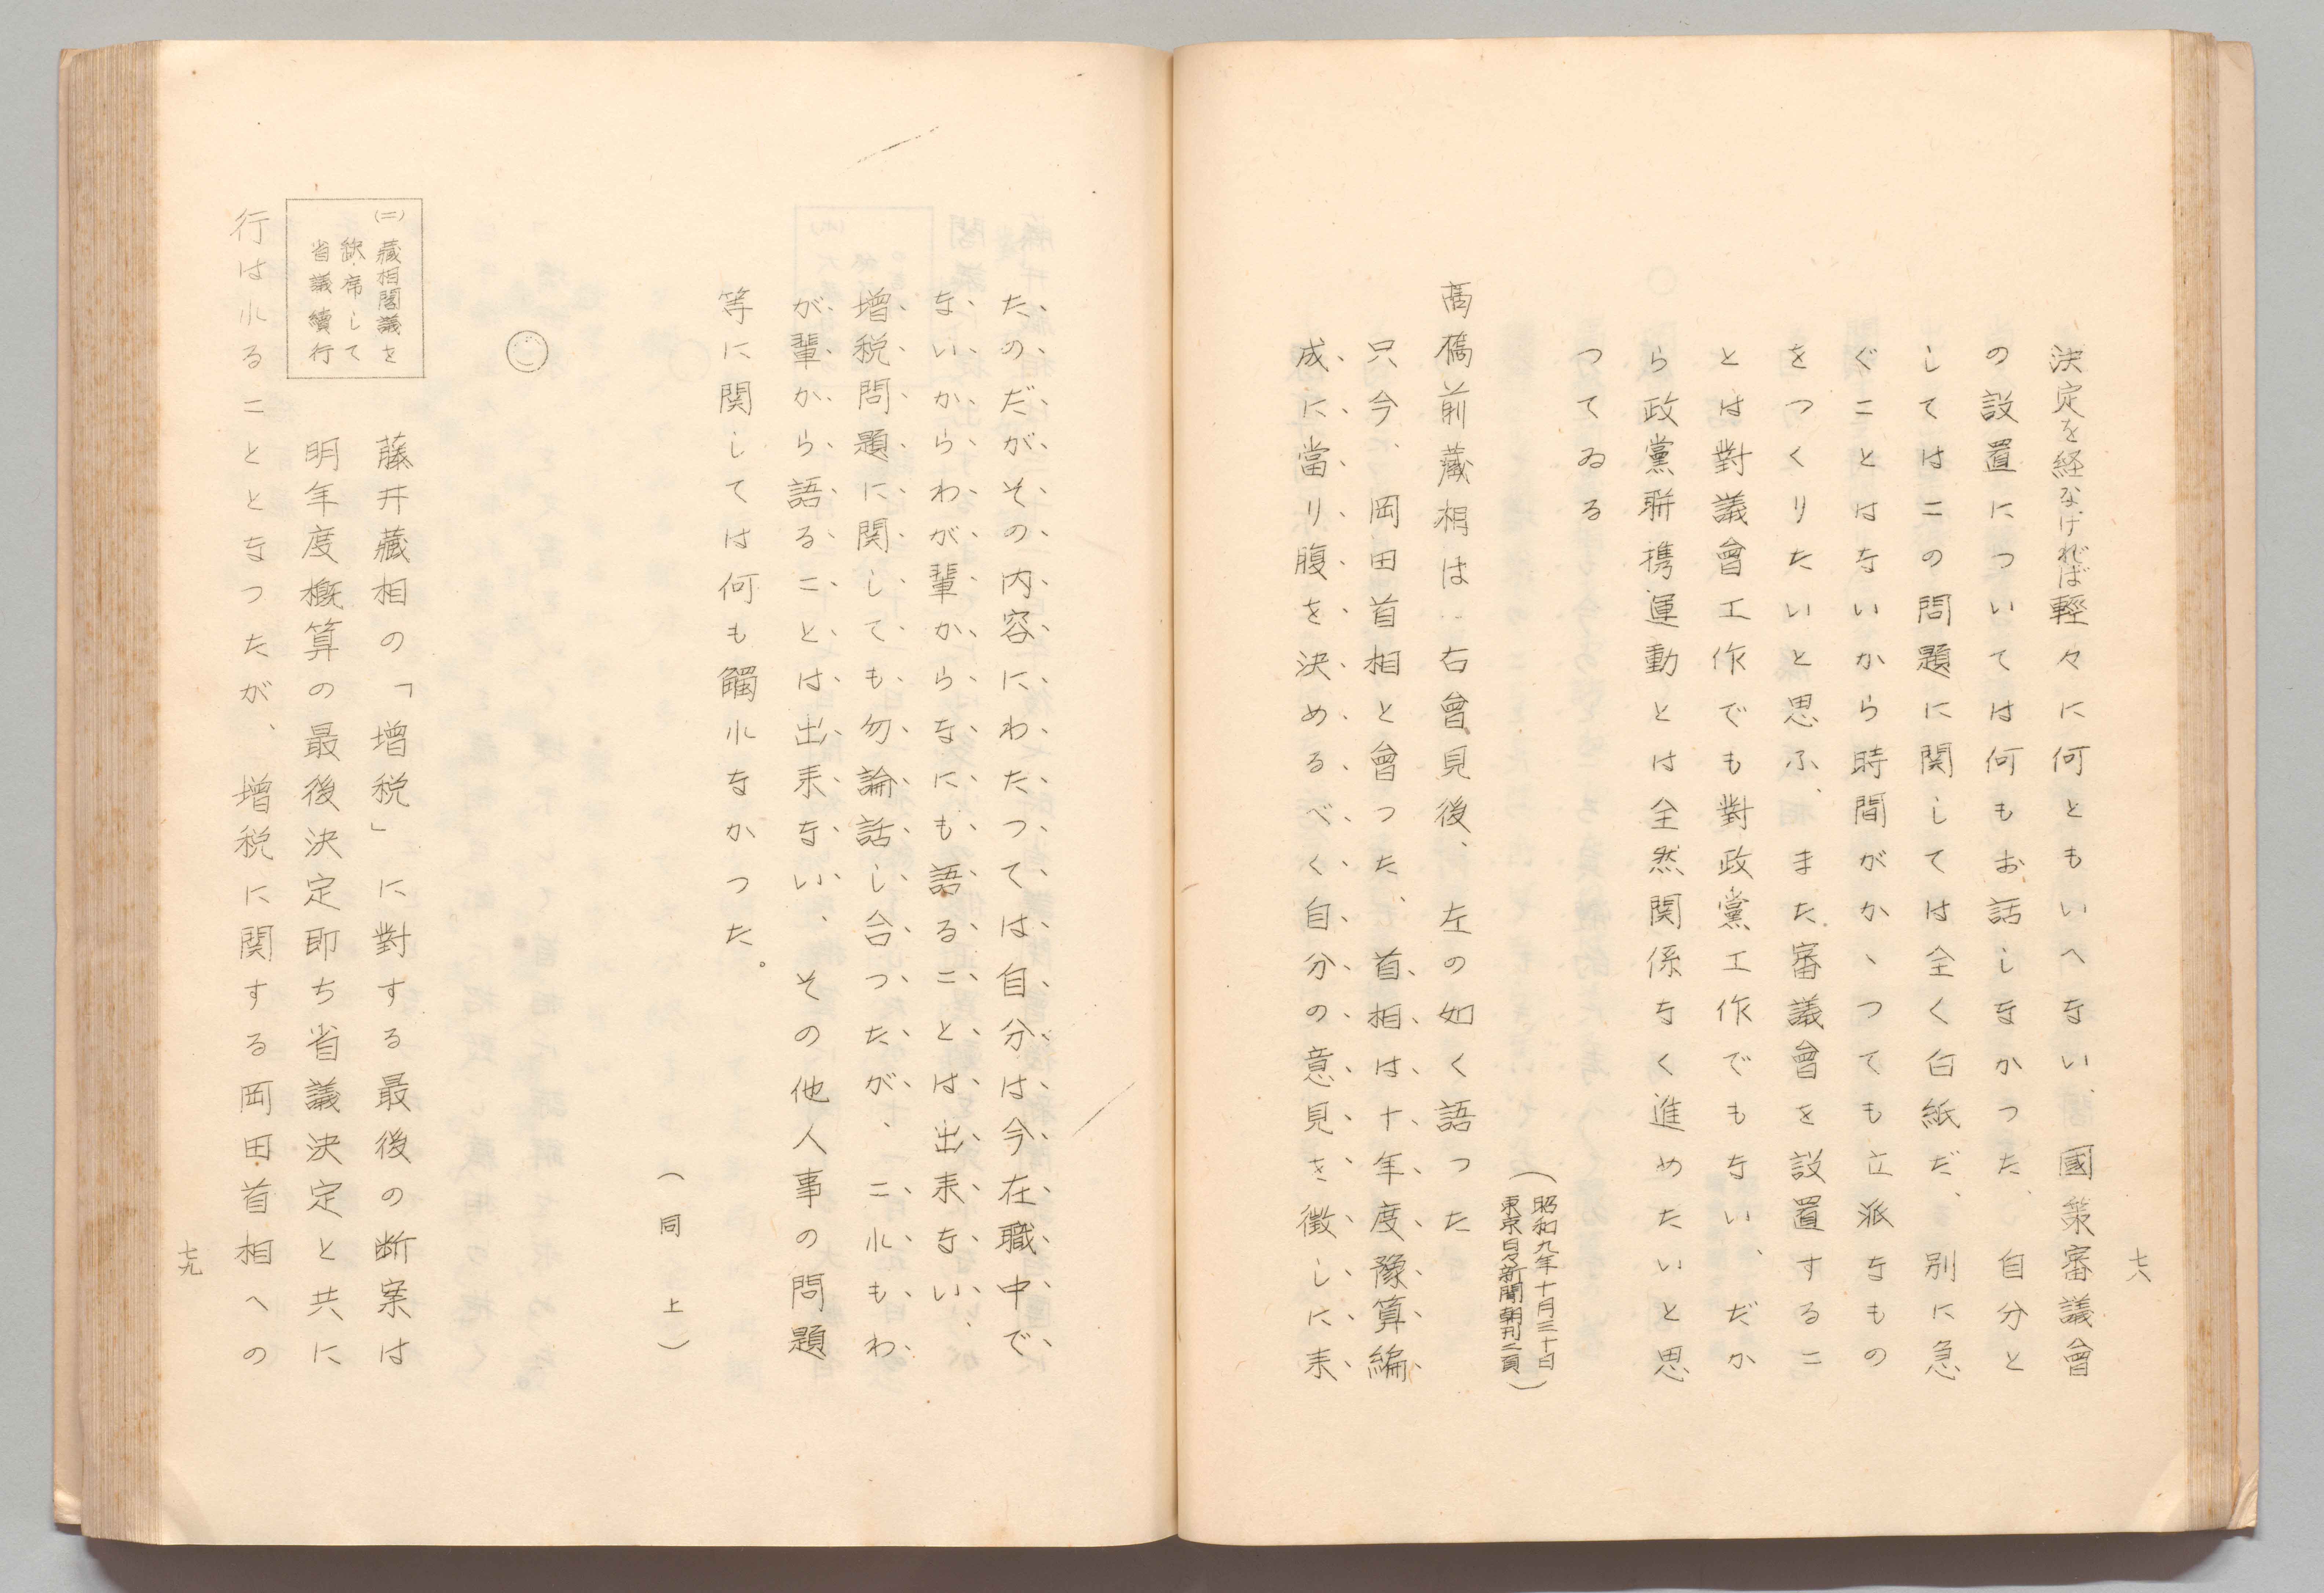 決定を経なければ輕々に何ともいへない、國策審議會
の設置については何もお話しなかつた、自分と
してはこの問題に関しては全く白紙だ、別に急
ぐことはないから時間がかゝつても立派なもの
をつくりたいと思ふ、また審議會を設置するこ
とは對議會工作でも對政黨工作でもない、だか
ら政黨聯携運動とは全然関係なく進めたいと思
つてゐる
（昭和九年十月三十日
東京日々新聞朝刊二頁）
高橋前藏相は‥右會見後、左の如く語つた
只今、岡田首相と會つた、首相は十年度豫算編
成に當り腹を決めるべく自分の意見を徴しに来
七八
たのだがその内容にわたつては自分は今在職中で
ないからわが輩からなにも語ることは出来ない、
増税問題に関しても勿論話し合つたが、これもわ
が輩から語ることは出来ない、その他人事の問題
等に関しては何も觸れなかつた。
（同上）
(二) 藏相閣議を
欽席して
省議續行
藤井藏相の「増税」に對する最後の断案は
明年度概算の最後決定即ち省議決定と共に
行はれることとなつたが、増税に関する岡田首相への
七九